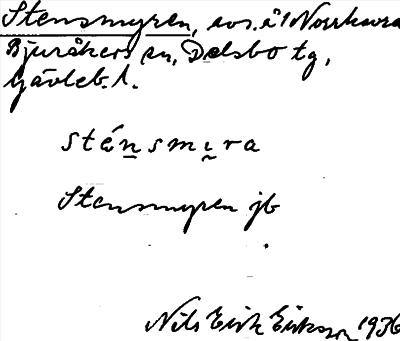 Stensmyren, sos. å 1 Norrhavra
Bjuråkers sn, Delsbo tg,
Gävleb. l.
sténsmira
Stensmyren jb
Nils Erik Eriksson 1936